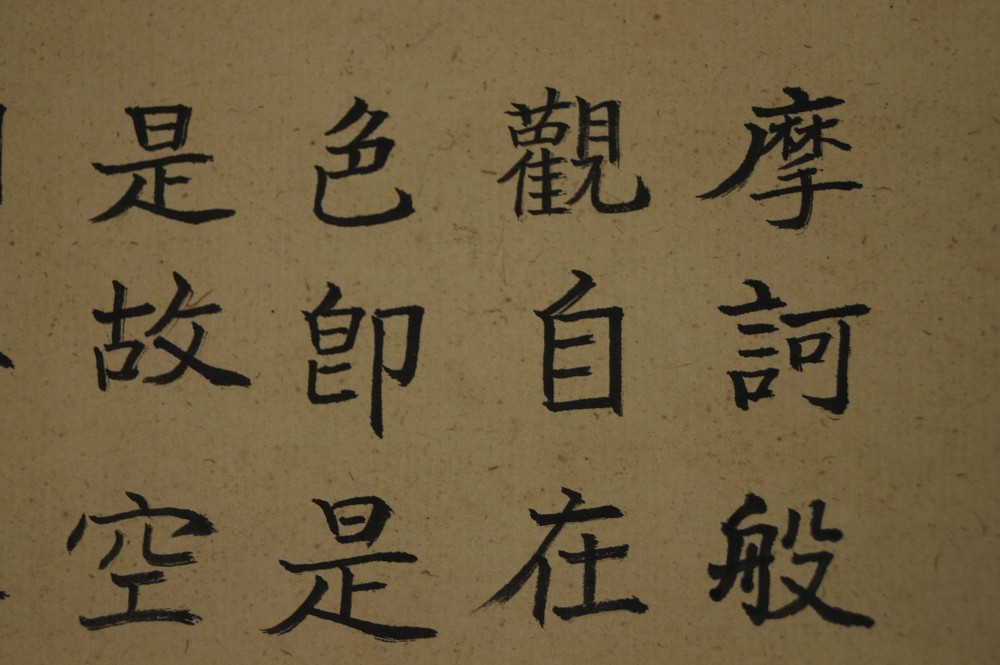 摩訶般
觀自在
色即是
是故空